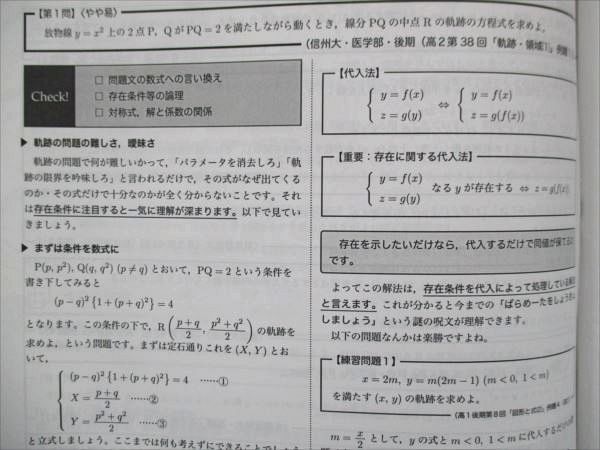 【第1問】〈やや易〉
放物線 y = x² 上の2点 P，Q が PQ = 2 を満たしながら動くとき，線分 PQ の中点 R の軌跡の方程式を求めよ．
（信州大・医学部・後期（高2第38回「軌跡・領域」例題
Check!
□ 問題文の数式への言い換え
□ 存在条件等の論理
□ 対称式，解と係数の関係
▶ 軌跡の問題の難しさ，曖昧さ
軌跡の問題で何が難しいかって，「パラメータを消去しろ」「軌
跡の限界を吟味しろ」と言われるだけで，その式がなぜ出てくる
のか・その式だけで十分なのかが全く分からないことです．それ
は存在条件に注目すると一気に理解が深まります。以下で見てい
きましょう．
▶ まずは条件を数式に
P(p, p²), Q(q, q²) (p ≠ q) とおいて，PQ = 2 という条件を
書き下してみると
(p − q)² {1 + (p + q)²} = 4
となります．この条件の下で，R ( (p + q)/2 , (p² + q²)/2 ) の軌跡を
求めよ，という問題です．まずは定石通りこれを (X, Y) とお
いて，
(p − q)² {1 + (p + q)²} = 4 ……①
X = (p + q)/2 ……②
Y = (p² + q²)/2 ……③
と立式しましょう．ここまでは何も考えずにできることでしょう
【代入法】
{ y = f(x) ⇔ { y = f(x)
{ z = g(y) { z = g(f(x))
【重要：存在に関する代入法】
{ y = f(x)
{ z = g(y) なる y が存在する ⇔ z = g(f(x))
存在を示したいだけなら，代入するだけで同値が保て
です。
よってこの解法は，存在条件を代入によって処理している
と言えます。これが分かると今までの「ぱらめーたをしょうきょ
しましょう」という謎の呪文が理解できます．
以下の問題なんかは楽勝ですよね。
【練習問題1】
x = 2m, y = m(2m − 1) (m < 0, 1 < m)
を満たす (x, y) の軌跡を求めよ．
（高1後期第8回「図形と式②」例題
m = x/2 として，y の式と m < 0, 1 < m に代入するだけ